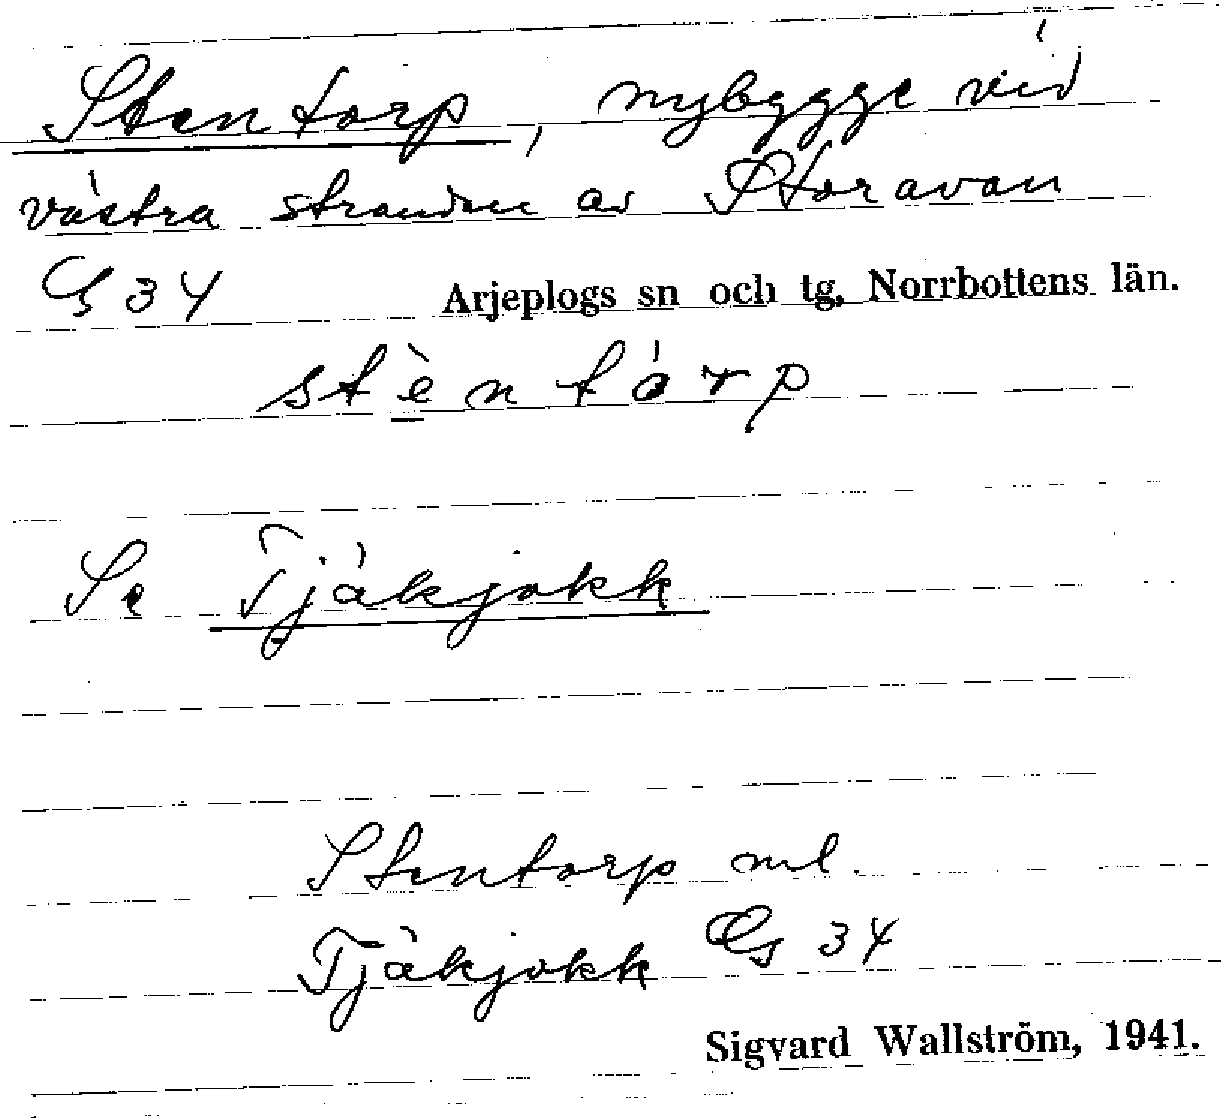 Stentorp, nybygge vid
västra stranden av Storavan
G 34 Arjeplogs sn och tg, Norrbottens län.
stèntárp
Se Tjåkjokk
Stentorp ml.
Tjåkjokk Gs 34
Sigvard Wallström, 1941.